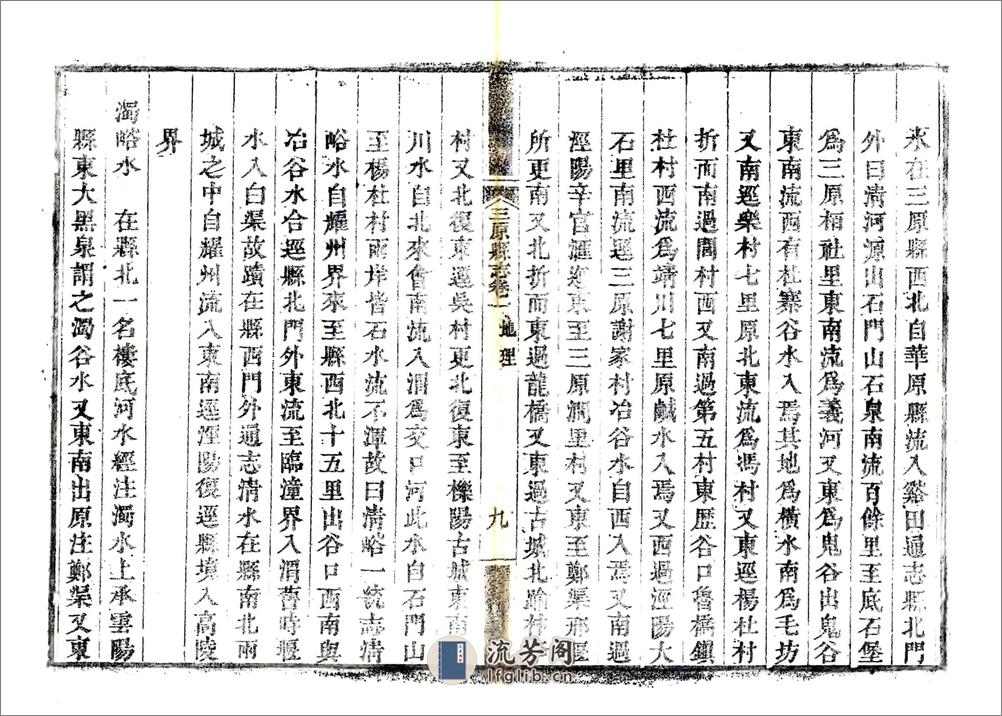 水在三原縣西北自華原縣流入谿田通志縣北門
外曰清河源出石門山石泉南流百餘里至底石堡
爲三原栢社里東南流爲義河又東爲鬼谷出鬼谷
東南流西有杜寨谷水入焉其地爲橫水南爲毛坊
又南逕樂村七里原北東流爲馮村又東逕楊杜村
折而南過閻村西又南過第五村東歷谷口魯橋鎮
杜村西流爲靖川七里原鹹水入焉又西過涇陽大
石里南流逕三原謝家村冶谷水自西入焉又南過
涇陽辛官滙迤東至三原澗里村又東至鄭渠邢堰
所更南又北折而東過龍橋又東過古城北踰林
三原縣志卷二 地理 九
村又北復東逕吳村更北復東至櫟陽古城東南
川水自北來會南流入渭爲交口河此水自石門山
至楊杜村兩岸皆石水流不渾故曰清峪一統志清
峪水自耀州界來至縣西北十五里出谷口西南與
冶谷水合逕縣北門外東流至臨潼界入渭舊時堰
水入白渠故蹟在縣西門外通志清水在縣南北兩
城之中自耀州流入東南逕涇陽復逕縣境入高陵
界
濁峪水 在縣北一名樓底河水經注濁水上承雲陽
縣東大黑泉謂之濁谷水又東南出原注鄭渠又東
流芳阁
lfglib.cn